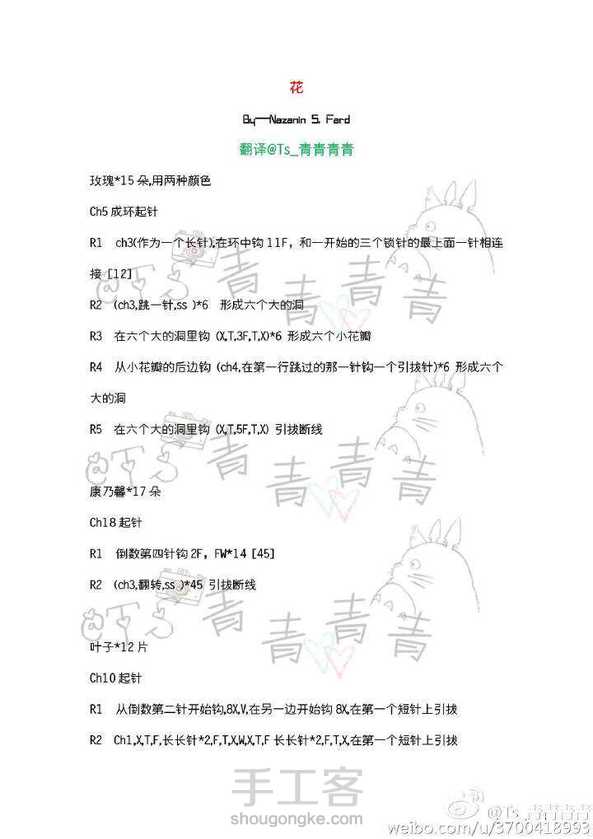 花
By—Nazanin S. Fard
翻译@Ts_青青青青
玫瑰*15朵,用两种颜色
Ch5成环起针
R1 ch3(作为一个长针),在环中钩11F，和一开始的三个锁针的最上面一针相连
接 [12]
R2 (ch3,跳一针,ss )*6 形成六个大的洞
R3 在六个大的洞里钩 (X,T,3F,T,X)*6 形成六个小花瓣
R4 从小花瓣的后边钩 (ch4,在第一行跳过的那一针钩一个引拔针)*6 形成六个
大的洞
R5 在六个大的洞里钩 (X,T,5F,T,X) 引拔断线
@TS 青青青青
@TS 青青青青
康乃馨*17朵
Ch18起针
R1 倒数第四针钩2F，FW*14 [45]
R2 (ch3,翻转,ss )*45 引拔断线
@TS 青青青青
叶子*12片
Ch10起针
R1 从倒数第二针开始钩,8X,V,在另一边开始钩8X,在第一个短针上引拔
R2 Ch1,X,T,F,长长针*2,F,T,X,W,X,T,F 长长针*2,F,T,X,在第一个短针上引拔
手工客
shougongke.com
@Ts_青青青青
weibo.com/u/3700418993